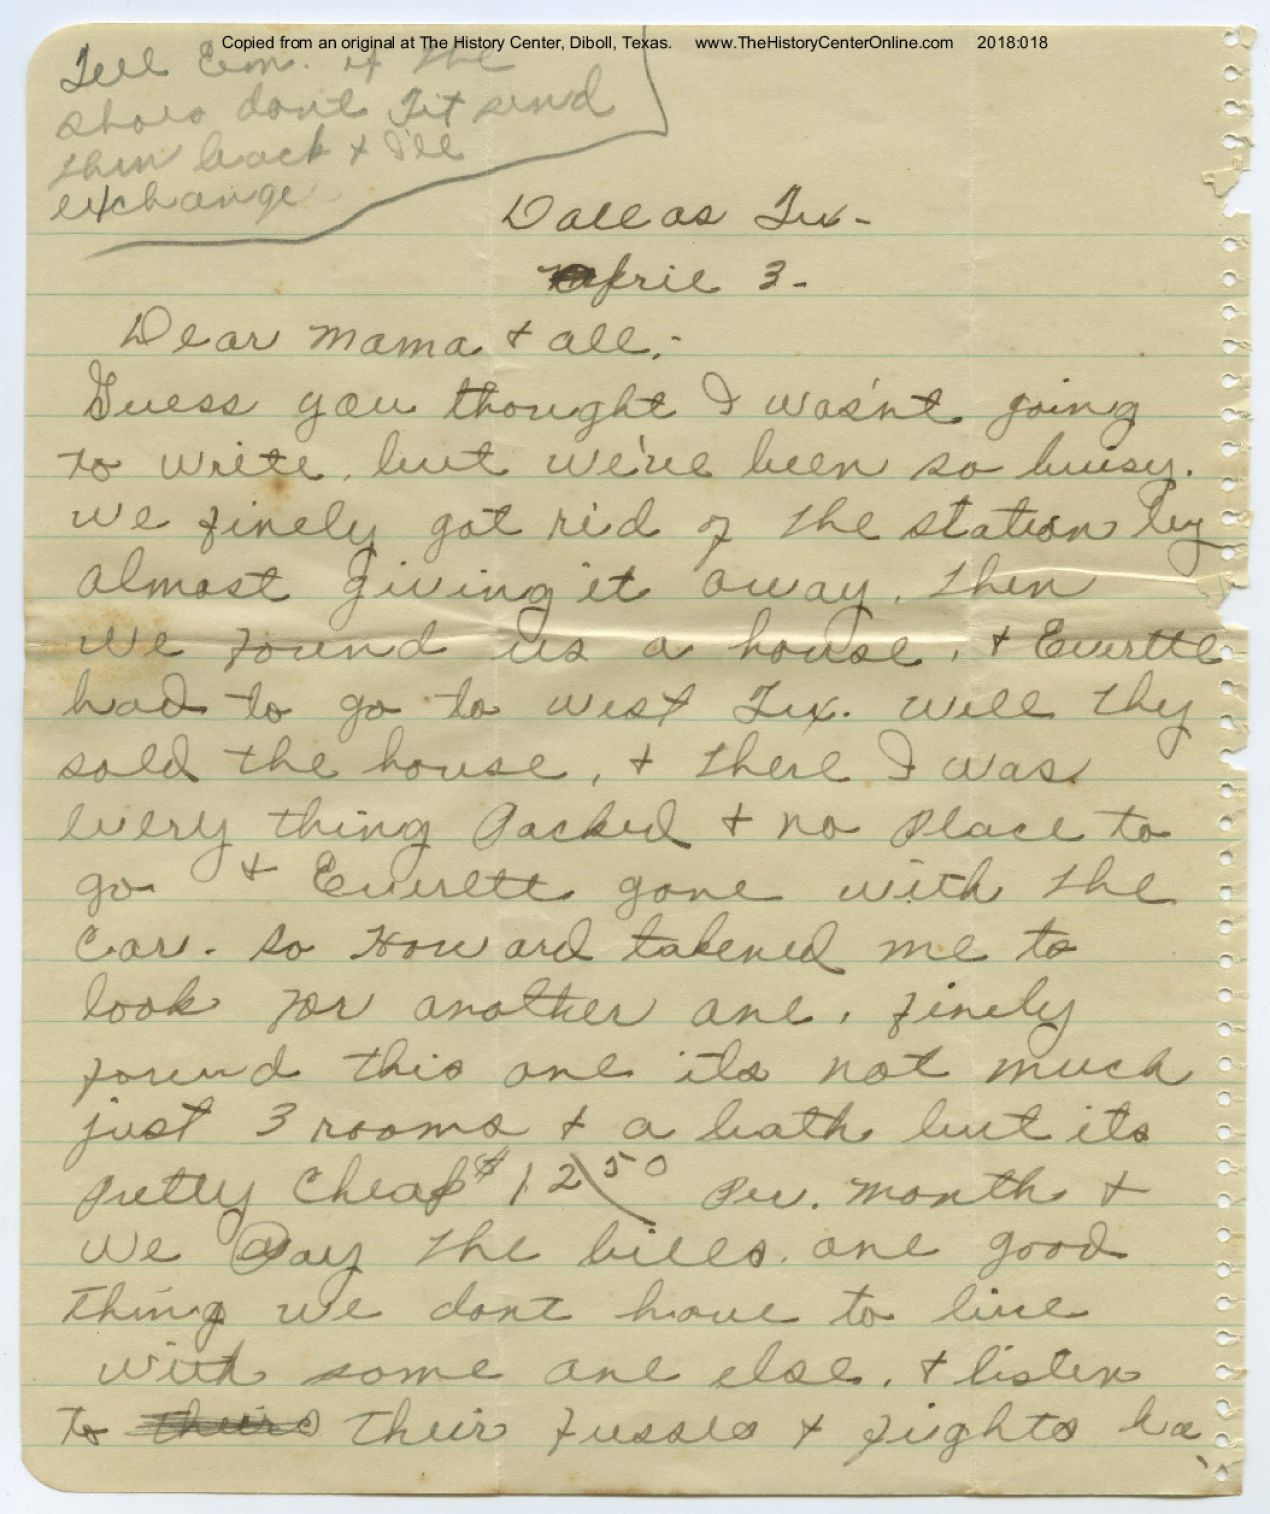 Copied from an original at The History Center, Diboll, Texas. www.TheHistoryCenterOnline.com 2018:018
Tell Em. if the
shoes dont fit send
them back + I'll
exchange
Dallas Tex-
April 3-
Dear Mama + all,-
Guess you thought I was'nt going
to write, but we've been so buisy.
we finely got rid of the station by
almost giving it away. then
we found us a house, + Everette
had to go to west Tex. well they
sold the house, + there I was
every thing Packed + no Place to
go + Everette gone with the
car. so Howard takened me to
look for another one, finely
found this one its not much
just 3 rooms + a bath but its
pretty cheap $12.50 Per. month +
we Pay the bills. one good
thing we dont have to live
with some one else, + listen
to theirs their fusses + fights ha